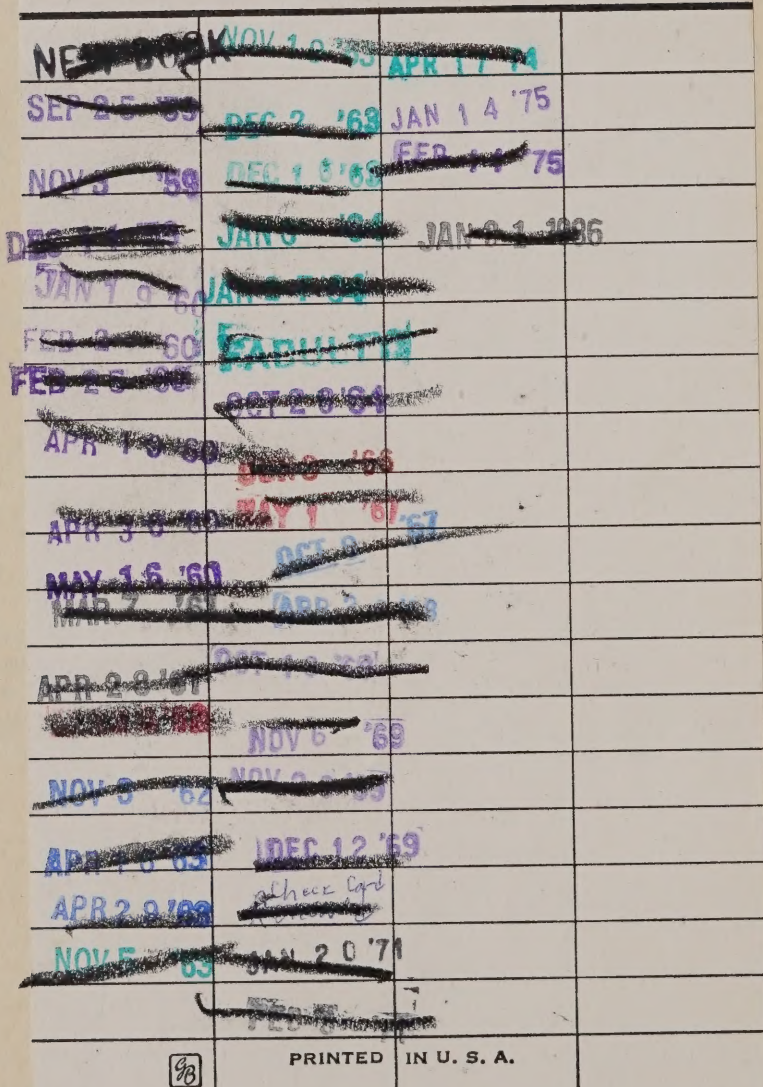 NEW BOOK
SEP 25 '59
NOV 3 '59
DEC
JAN 19 '60
FEB 2 60
FEB 25 '60
APR 19 60
APR 30 60
MAY 16 '60
MAR 7 '61
APR 28 '61
NOV 3 '62
APR 16 63
APR 29 '63
NOV 5 '63
NOV 1 '63
DEC 2 '63
DEC 16 '63
JAN 6 '64
JAN 64
ADULT
OCT 26 '64
'66
MAY 1 '67
OCT 9 '67
APR '68
OCT
NOV 6 '69
NOV '69
DEC 12 '69
Check Card
JAN 20 '71
FEB
APR 17 74
JAN 14 '75
FEB 14 '75
JAN 31 1986
GB
PRINTED IN U. S. A.